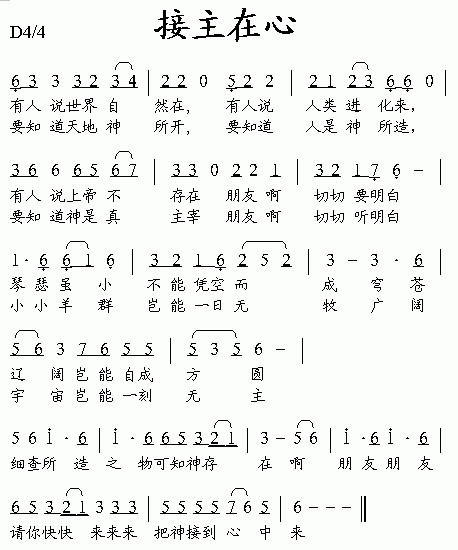 接主在心
D4/4
6 3 3 3 2 3 4 | 2 2 0 5 2 2 | 2 1 2 3 6 6 0 |
有人 说世界 自 然在， 有人说 人类 进 化来，
要知 道天地 神 所开， 要知道 人是 神 所造，
3 6 6 6 5 6 7 | 3 3 0 2 2 1 | 3 2 1 7 6 - |
有人 说上帝 不 存在 朋友 啊 切切 要明白
要知 道神是 真 主宰 朋友 啊 切切 听明白
1· 6 6 6 1 6 | 3 2 1 6 2 5 2 | 3 - 3· 6 |
琴 瑟虽 小 不能 凭空 而 成 穹 苍
小 小羊 群 岂能 一日 无 牧 广 阔
5 6 3 7 6 5 5 | 5 3 5 6 - |
辽 阔岂能 自成 方 圆
宇 宙岂能 一刻 无 主
5 6 1· 6 | 1· 6 6 5 3 2 1 | 3 - 5 6 | 1· 6 1· 6 |
细查所 造 之 物可知神存 在 啊 朋友 朋友
6 5 3 2 1 3 3 3 | 5 5 5 5 7 6 5 | 6 - - - ‖
请你快快 来来来 把神接到 心 中 来